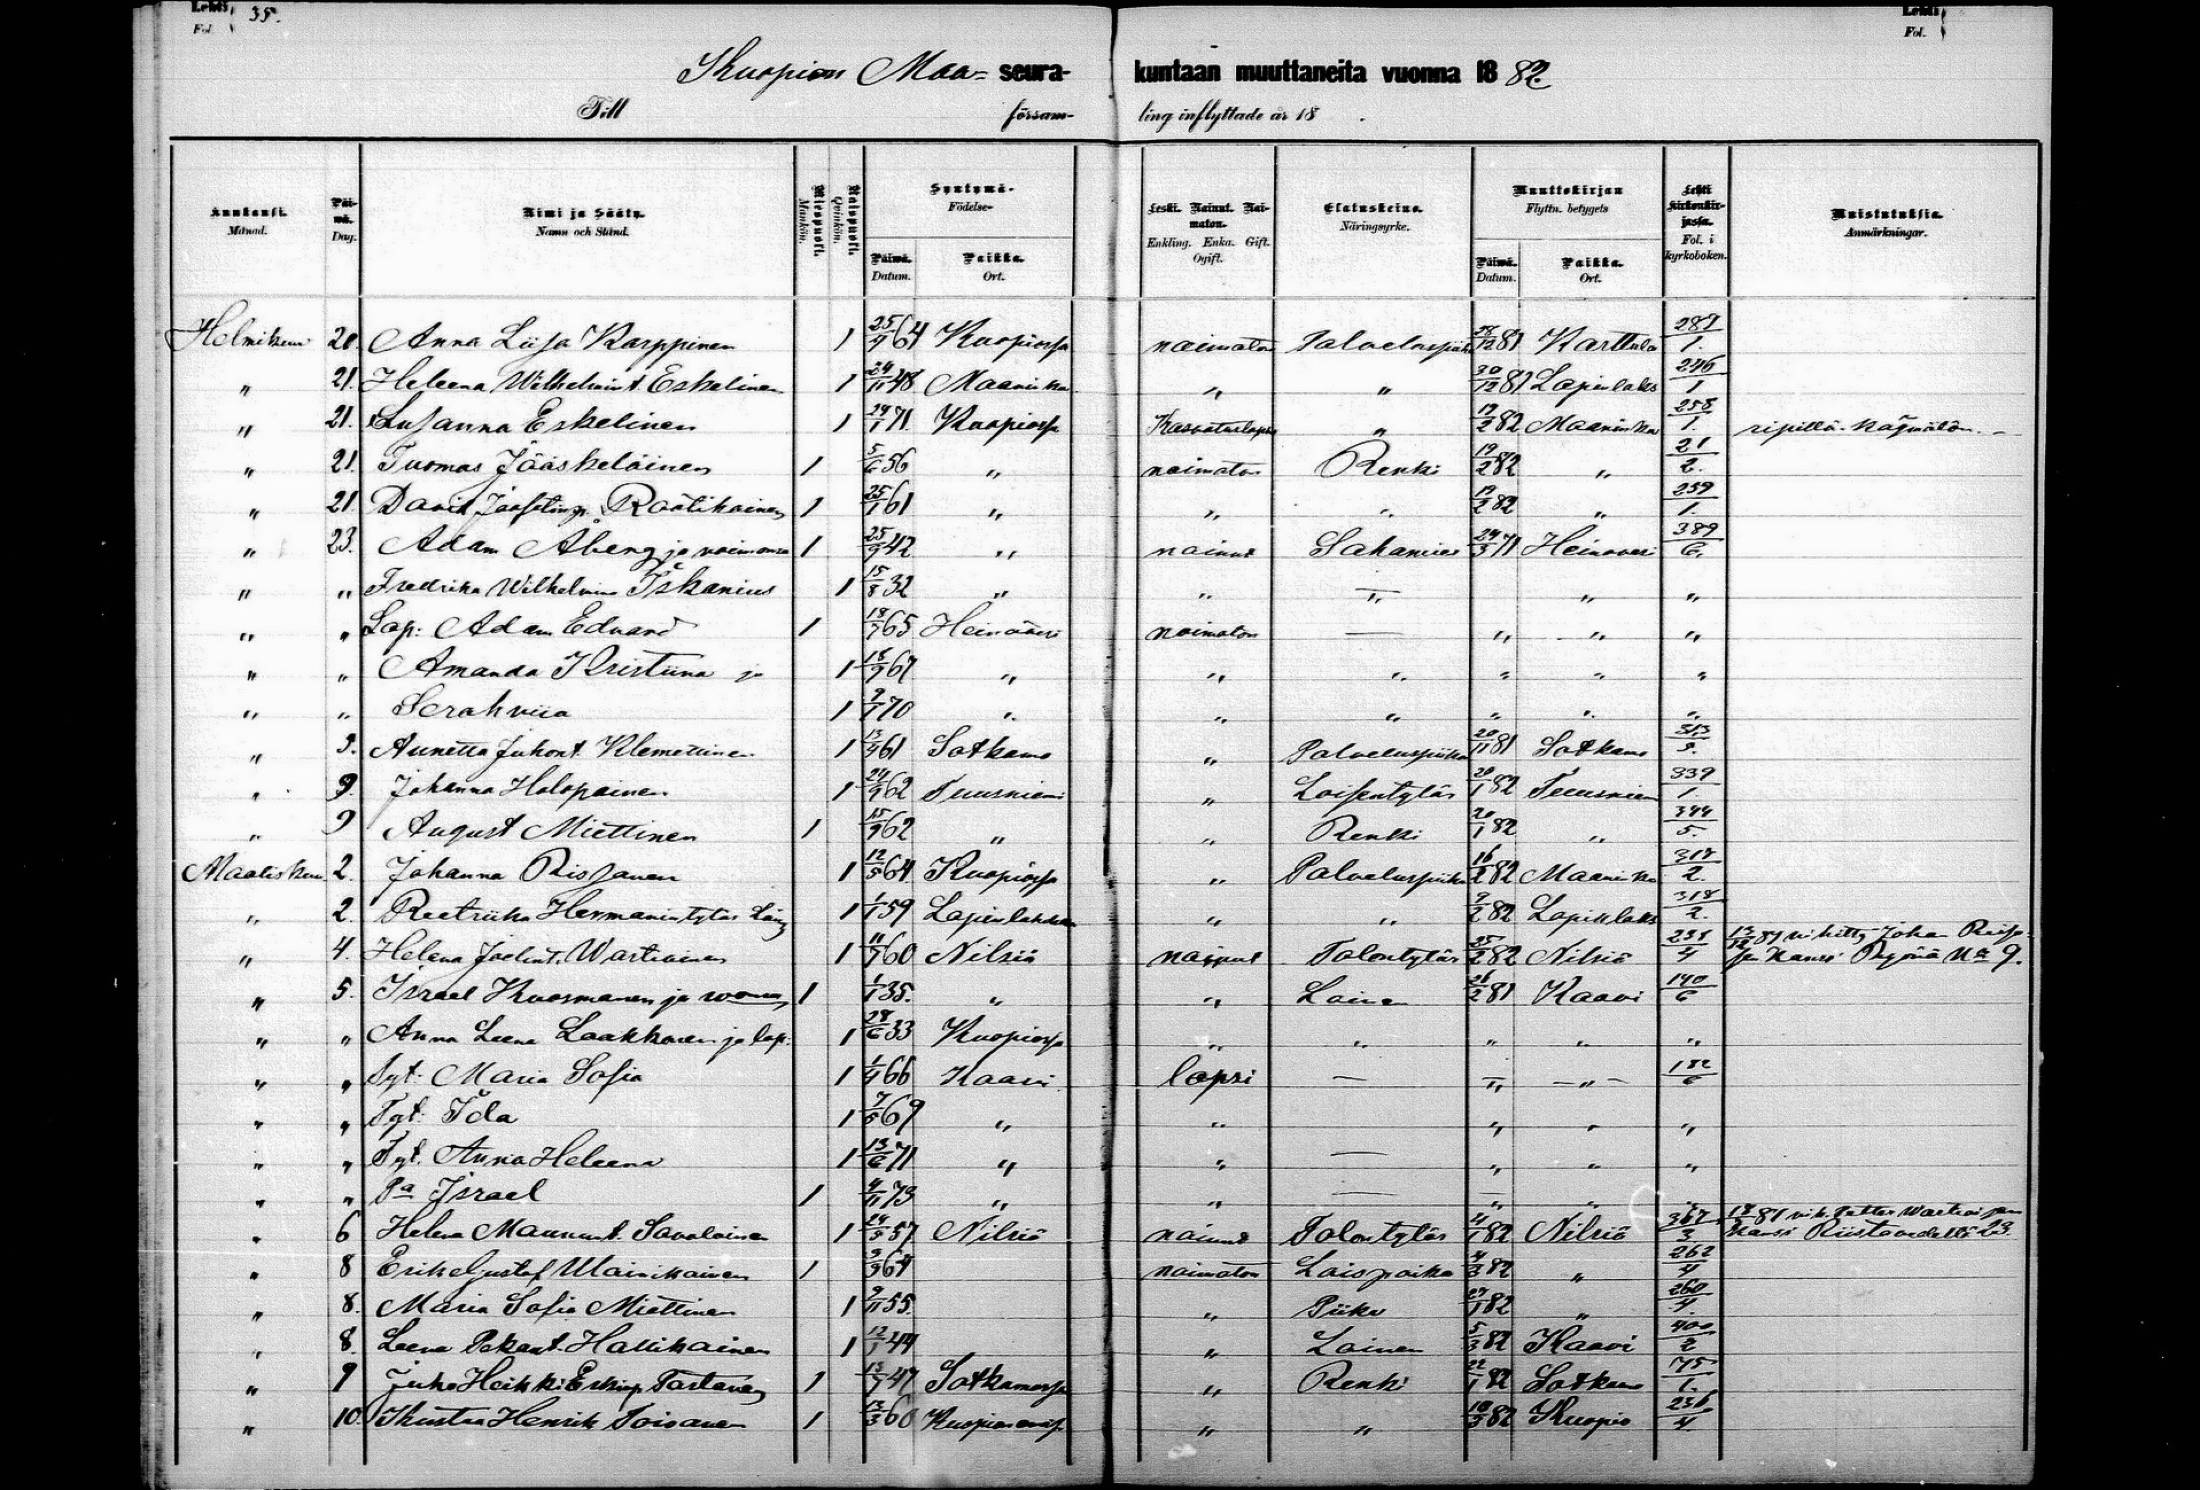 Lehti 35.
Fol.
Lehti
Fol.
Kuopion Maa- seura- kuntaan muuttaneita vuonna 18 82.
Till församling inflyttade år 18 .
Kuukausi. Månad. Päivä. Dag. Nimi ja Sääty. Namn och Stånd. Miespuoli. Mankön. Naispuoli. Qvinkön. Syntymä- Födelse- Päivä. Datum. Paikka. Ort. Leski. Nainut. Naimaton. Enkling. Enka. Gift. Ogift. Elatuskeino. Näringsyrke. Muuttokirjan Flyttn. betygets Päivä. Datum. Paikka. Ort. Lehti kirkonkirjassa. Fol. i kyrkoboken. Muistutuksia. Anmärkningar.
Helmikuu 20. Anna Liisa Karppinen 1 25/9 64 Kuopiossa naimaton Palveluspiik 28/12 81 Karttula 289/1.
" 21. Heleena Wilhelmint. Eskelinen 1 24/11 48 Maaninka " " 30/12 81 Lapinlaks 246/1
" 21. Susanna Eskelinen 1 24/1 71. Kuopiossa Kasvatuslapsi " 19/2 82 Maaninka 258/1. ripillä-käymätön.
" 21. Tuomas Jääskeläinen 1 5/6 56 " naimaton Renki 19/2 82 " 21/2.
" 21. David Raatikainen 1 25/1 61 " " " 19/2 82 " 259/1.
" 23. Adam Åberg ja vaimonsa 1 25/9 42 " nainut Sahamies 24/3 71 Heinävesi 389/6.
" " Fredrika Wilhelmina Iskanius 1 15/8 32 " " " " "
" " Lap: Adam Edvard 1 18/7 65 Heinävesi naimaton — " " "
" " Amanda Kristiina ja 1 18/9 67 " " " " " "
" " Serahviia 1 9/1 70 " " " " " "
" 9. Annetta Juhont. Klemettinen 1 13/4 61 Sotkamo " Palveluspiika 20/11 81 Sotkamo 313/5.
" 9. Johanna Holopainen 1 24/9 62 Tuusniemi " Loisentytär 20/1 82 Tuusniem 339/1.
" 9 August Miettinen 1 15/9 62 " " Renki 20/1 82 " 344/5.
Maalisku. 2. Johanna Rissanen 1 12/5 64 Kuopiossa " Palveluspiika 16/2 82 Maaninka 317/2.
" 2. Reetriika Hermanintytär 1 1/1 59 Lapinlahdella " " 9/2 82 Lapinlaks 318/2.
" 4. Helena Joelint. Wartiainen 1 11/7 60 Nilsiä nainut Talontytär 25/2 82 Nilsiä 231/4 13/12 81 vihitty Johan kanssa No 9.
" 5. Israel Kuosmanen ja 1 1/1 35. " " Loinen 26/2 81 Kaavi 140/6
" " Anna Leena Laakkonen ja lap: 1 28/6 33 Kuopiossa " " " " "
" " Tyt: Maria Sofia 1 1/4 66 Kaavi lapsi — " " 132/6
" " Tyt: Ida 1 7/5 69 " " " " "
" " Tyt. Anna Heleena 1 13/6 71 " " — " " "
" " Pa Israel 1 4/11 73 " " — " " "
" 6 Helena Maununt. Savolainen 1 24/5 57 Nilsiä nainut Talontytär 4/1 82 Nilsiä 367/3. 18/9 81 vih. Petter Wartiaisen kanssa Riistavedeltä 23.
" 8 Erik Gustaf Wainikainen 1 3/9 64 naimaton Loispoika 4/3 82 " 262/4
" 8. Maria Sofia Miettinen 1 9/11 55. " Piika 27/1 82 " 260/4.
" 8. Leena Pekant. Hallikainen 1 12/1 44 " Loinen 5/3 82 Kaavi 400/2
" 9 Juho Heikki Eskinp. Tartanen 1 13/7 47 Sotkamossa " Renki 22/1 82 Sotkamo 75/1.
" 10. Kustaa Henrik Toivanen 1 13/3 60 " " 10/3 82 Kuopio 236/4.